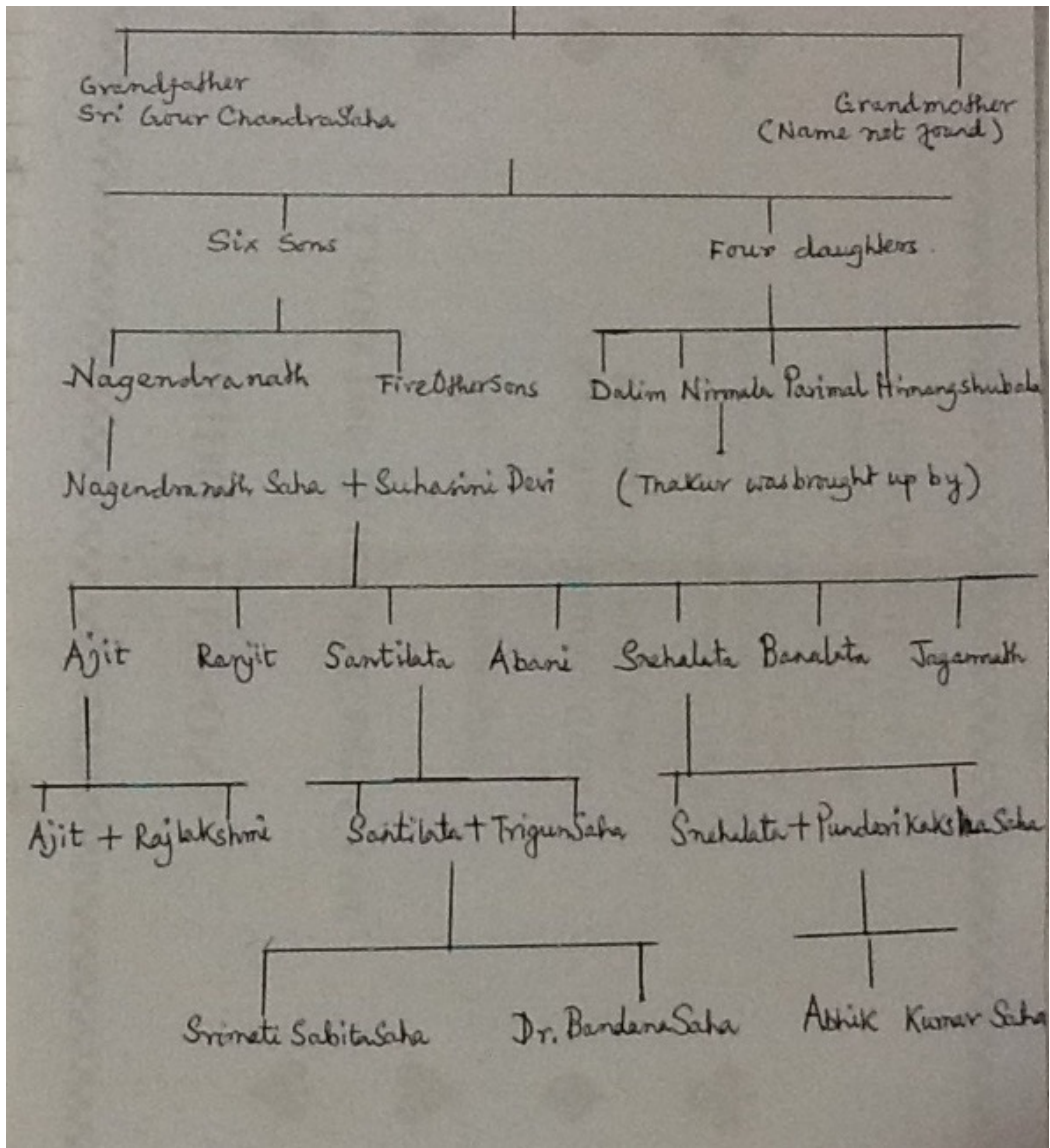 Grandfather
Sri Gour Chandra Saha
Grandmother
(Name not found)
Six Sons
Four daughters.
Nagendranath
Five Other Sons
Dalim Nirmala Parimal Himangshubala
Nagendranath Saha + Suhasini Devi
(Thakur was brought up by)
Ajit Ranjit Santilata Abani Snehalata Banalata Jagannath
Ajit + Rajlakshmi
Santilata + Trigun Saha
Snehalata + Pundarikaksha Saha
Srimati Sabita Saha
Dr. Bandana Saha
Abhik Kumar Saha